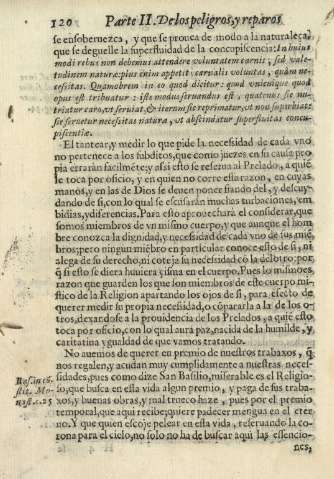 120 Parte II. De los peligros, y reparos
se ensoberuezca, y que se prouea de modo a la naturaleça,
que se deguelle la superfluidad de la concupiscencia: In huius
modi rebus non debemus attendere voluntatem carnis, sed vale-
tudinem naturæ: plus enim appetit carnalis voluntas, quàm ne-
cesitas. Quamobrem in eo quod dicitur: quod vnicuique quod
opus est tribuatur: iste modus seruandus est, quatenus sic nu-
triatur caro, vt seruiat, & iterum sic reprimatur, vt non superbiat:
sic seruetur necesitas natura, vt abscindatur superfluitas concu-
piscentiæ.
El tantear, y medir lo que pide la necesidad de cada vno
no pertenece a los subditos, que como juezes en su causa pro
pia errarán facilmēte; y assi esto se reserua al Prelado, a quiē
le toca por oficio, y en quien no corre essa razon, en cuyas
manos, y en las de Dios se deuen poner fiando del, y descuy-
dando de si, con lo qual se escusarán muchas turbaciones, em
bidias, y diferencias. Para esto aprouechará el considerar, que
somos miembros de vn mismo cuerpo, y que aunque el hom
bre conozca la dignidad, y necesidad de cada vno de sus miē
bros; pero ningun miēbro en particular conoce esto de si, ni
alega de su derecho, ni coteja su necesidad cō la del otro: por
q̃ si esto se diera huuiera cisma en el cuerpo. Pues lo mismo es
razon que guarden los que son miembros de este cuerpo mi-
stico de la Religion apartando los ojos de si, para efecto de
querer medir su propia necesidad, o cōpararla a la de los o-
tros, dexandose a la prouidencia de los Prelados, a quiē esto
toca por oficio, con lo qual aura paz, nacida de la humilde, y
caritatina ygualdad de que vamos tratando.
No auemos de querer en premio de nuestros trabaxos, q̃
nos regalen, y acudan muy cumplidamente a nuestras necessi-
sidades, pues como dize San Basilio, miserable es el Religio-
so, que busca en esta vida algun premio, y paga de sus traba-
xos, y buenas obras, y mal trueco haze, pues por el premio
temporal, que aqui recibe, quiere padecer mengua en el eter
no. Y que quien escoje pelear en esta vida, reseruando la co-
rona para el cielo, no solo no ha de buscar aqui las essencio-
nes,
Basil. in cō
stit. Mo-
nast. c. 25